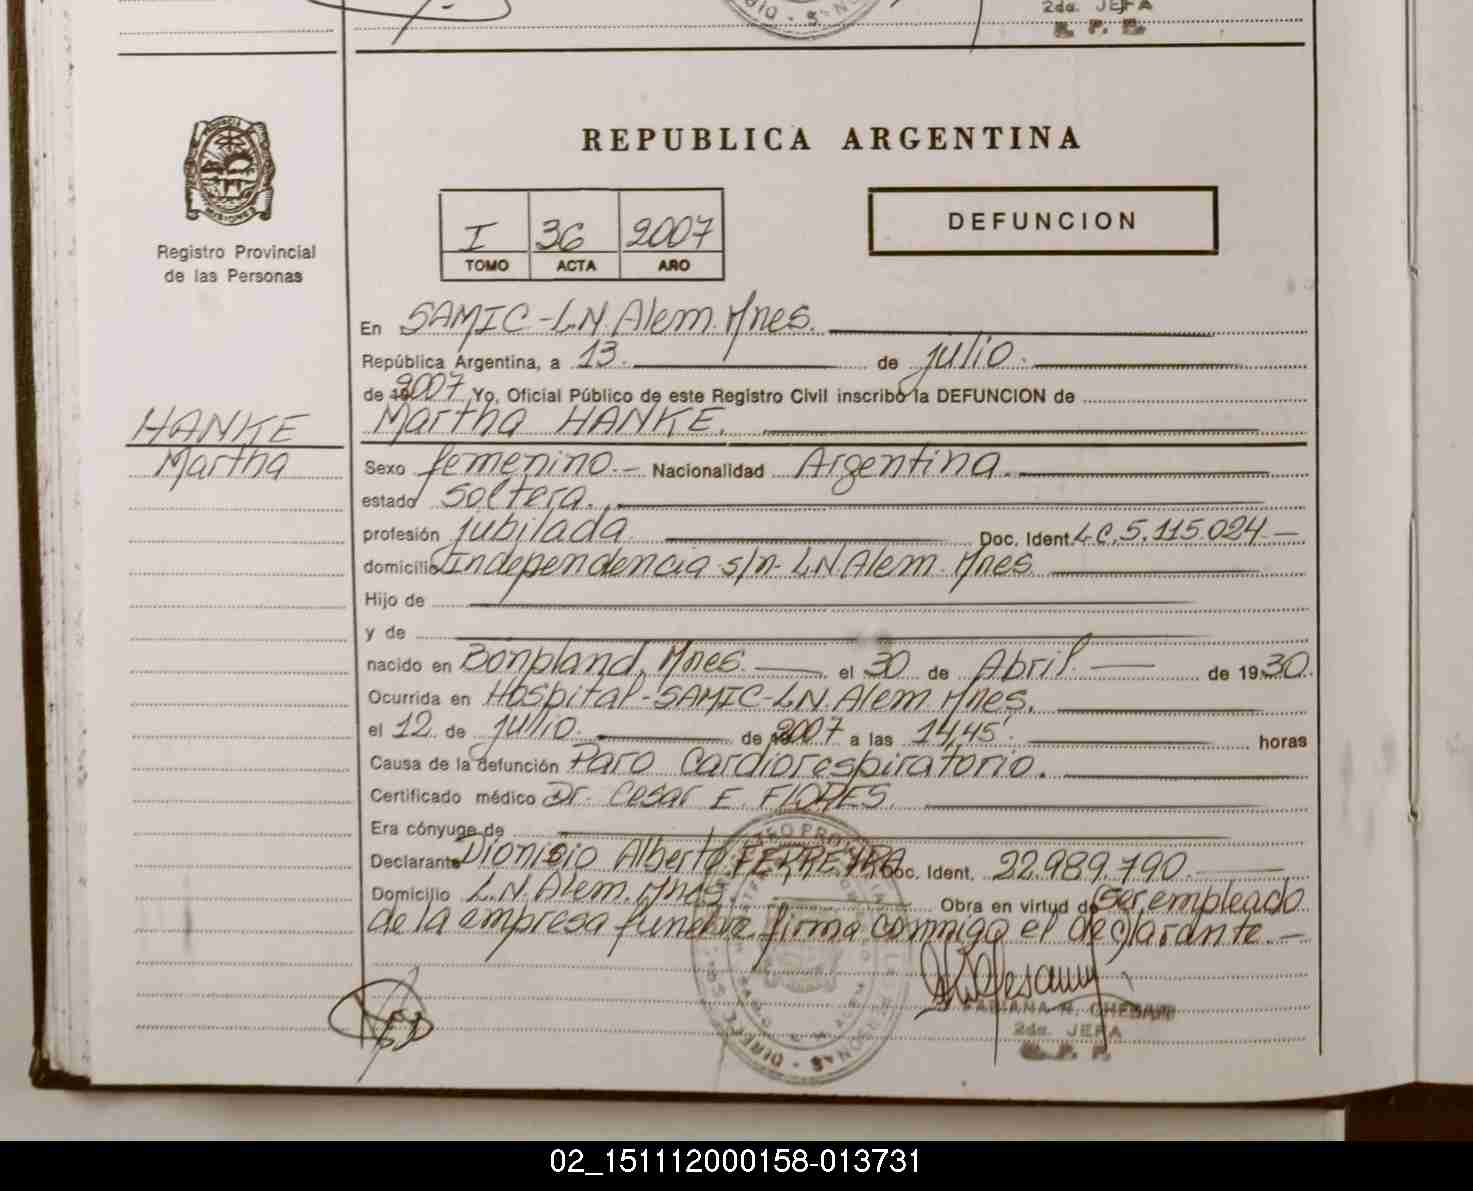 2da. JEFA
R. P. P.
REPUBLICA ARGENTINA
I 36 2007
TOMO ACTA AÑO
DEFUNCION
Registro Provincial
de las Personas
En SAMIC-L.N. Alem. Mnes.
República Argentina, a 13. de julio.
de 2007 Yo, Oficial Público de este Registro Civil inscribo la DEFUNCION de
HANKE
Martha
Martha HANKE.
Sexo femenino.- Nacionalidad Argentina.
estado soltera.
profesión jubilada Doc. Ident. L.C. 5.115.024-
domicilio Independencia s/n. L.N Alem. Mnes
Hijo de
y de
nacido en Bonpland, Mnes. el 30 de Abril. de 1930.
Ocurrida en Hospital-SAMIC-L.N Alem Mnes.
el 12. de julio. de 2007 a las 14,45'. horas
Causa de la defunción Paro Cardiorespiratorio.
Certificado médico Dr. Cesar E. FLORES.
Era cónyuge de
Declarante Dionisio Alberto FERREYRA Doc. Ident. 22.989.790.
Domicilio L.N. Alem. Mnes. Obra en virtud de ser empleado
de la empresa funebre. firma conmigo el declarante.-
FABIANA R.
2da. JEFA
R. P. P.
02_151112000158-013731